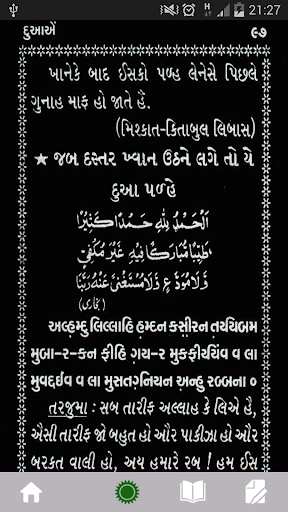 21:27
દુઆએં ૯૭
ખાનેકે બાદ ઈસકો પળ્હ લેનેસે પિછલે
ગુનાહ માફ હો જાતે હૈં.
(મિશ્કાત-કિતાબુલ લિબાસ)
★ જબ દસ્તર ખ્વાન ઉઠને લગે તો યે
દુઆ પળ્હે
اَلْحَمْدُ لِلّٰهِ حَمْدًا كَثِيْرًا
طَيِّبًا مُّبَارَكًا فِيْهِ غَيْرَ مُكْفِيٍّ
وَّلَا مُوَدَّعٍ وَّلَا مُسْتَغْنًى عَنْهُ رَبَّنَا
(بخاری)
અલ્હમ્દુ લિલ્લાહિ હમ્દન કસીરન તય્યિબમ
મુબા-ર-કન ફીહિ ગય-ર મુકફીય્યિંવ વ લા
મુવદ્દઈવ વ લા મુસતગ્નિયન અન્હુ રબ્બના ૦
તરજુમા : સબ તારીફ અલ્લાહ કે લિએ હૈ,
ઐસી તારીફ જો બહુત હો ઔર પાકીઝા હો ઔર
બરકત વાલી હો, અય હમારે રબ ! હમ ઈસ